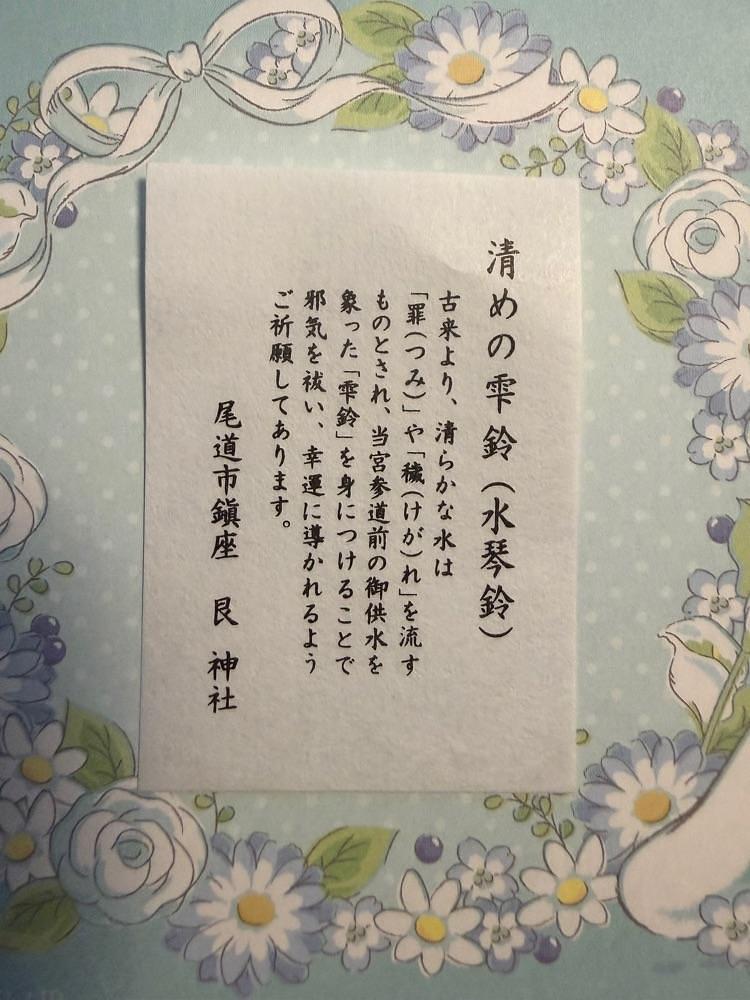 清めの雫鈴(水琴鈴)
古来より、清らかな水は
「罪(つみ)」や「穢(けが)れ」を流す
ものとされ、当宮参道前の御供水を
象った「雫鈴」を身につけることで
邪気を祓い、幸運に導かれるよう
ご祈願してあります。
尾道市鎭座 艮 神社